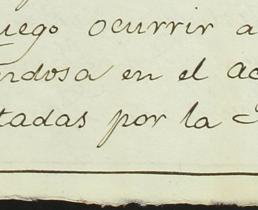 uego ocurrir a
ndosa en el ac
tadas por la